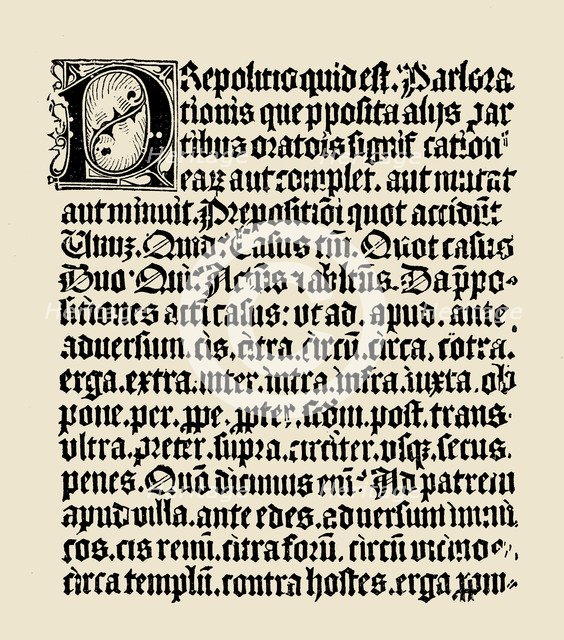 PRepositio quid est. Pars ora
tionis que pposita alijs par
tibus oratõis signification
eaꝫ aut complet. aut mutat
aut minuit. Prepositiõi quot accidũt
Unuꝫ. Quid: Casus tm̄. Quot casus
Duo Qui: Actũs ⁊ ablatũs. Da p̄po-
sitiones acc̄i casus: ut ad. apud. ante
aduersum. cis. citra. circũ. circa. cõtra.
erga. extra. inter. intra. infra. iuxta. ob
pone. per. ꝓpe. ꝓpter. scdm. post. trans-
vltra. preter. supra. circiter. vsqꝫ. secus.
penes. Quõ dicimus eni: Ad patrem
apud villa. ante edes. aduersum inimi
cos. cis renũ. citra forũ. circũ vicino
circa templũ. contra hostes. erga ꝓpin-
Heritage